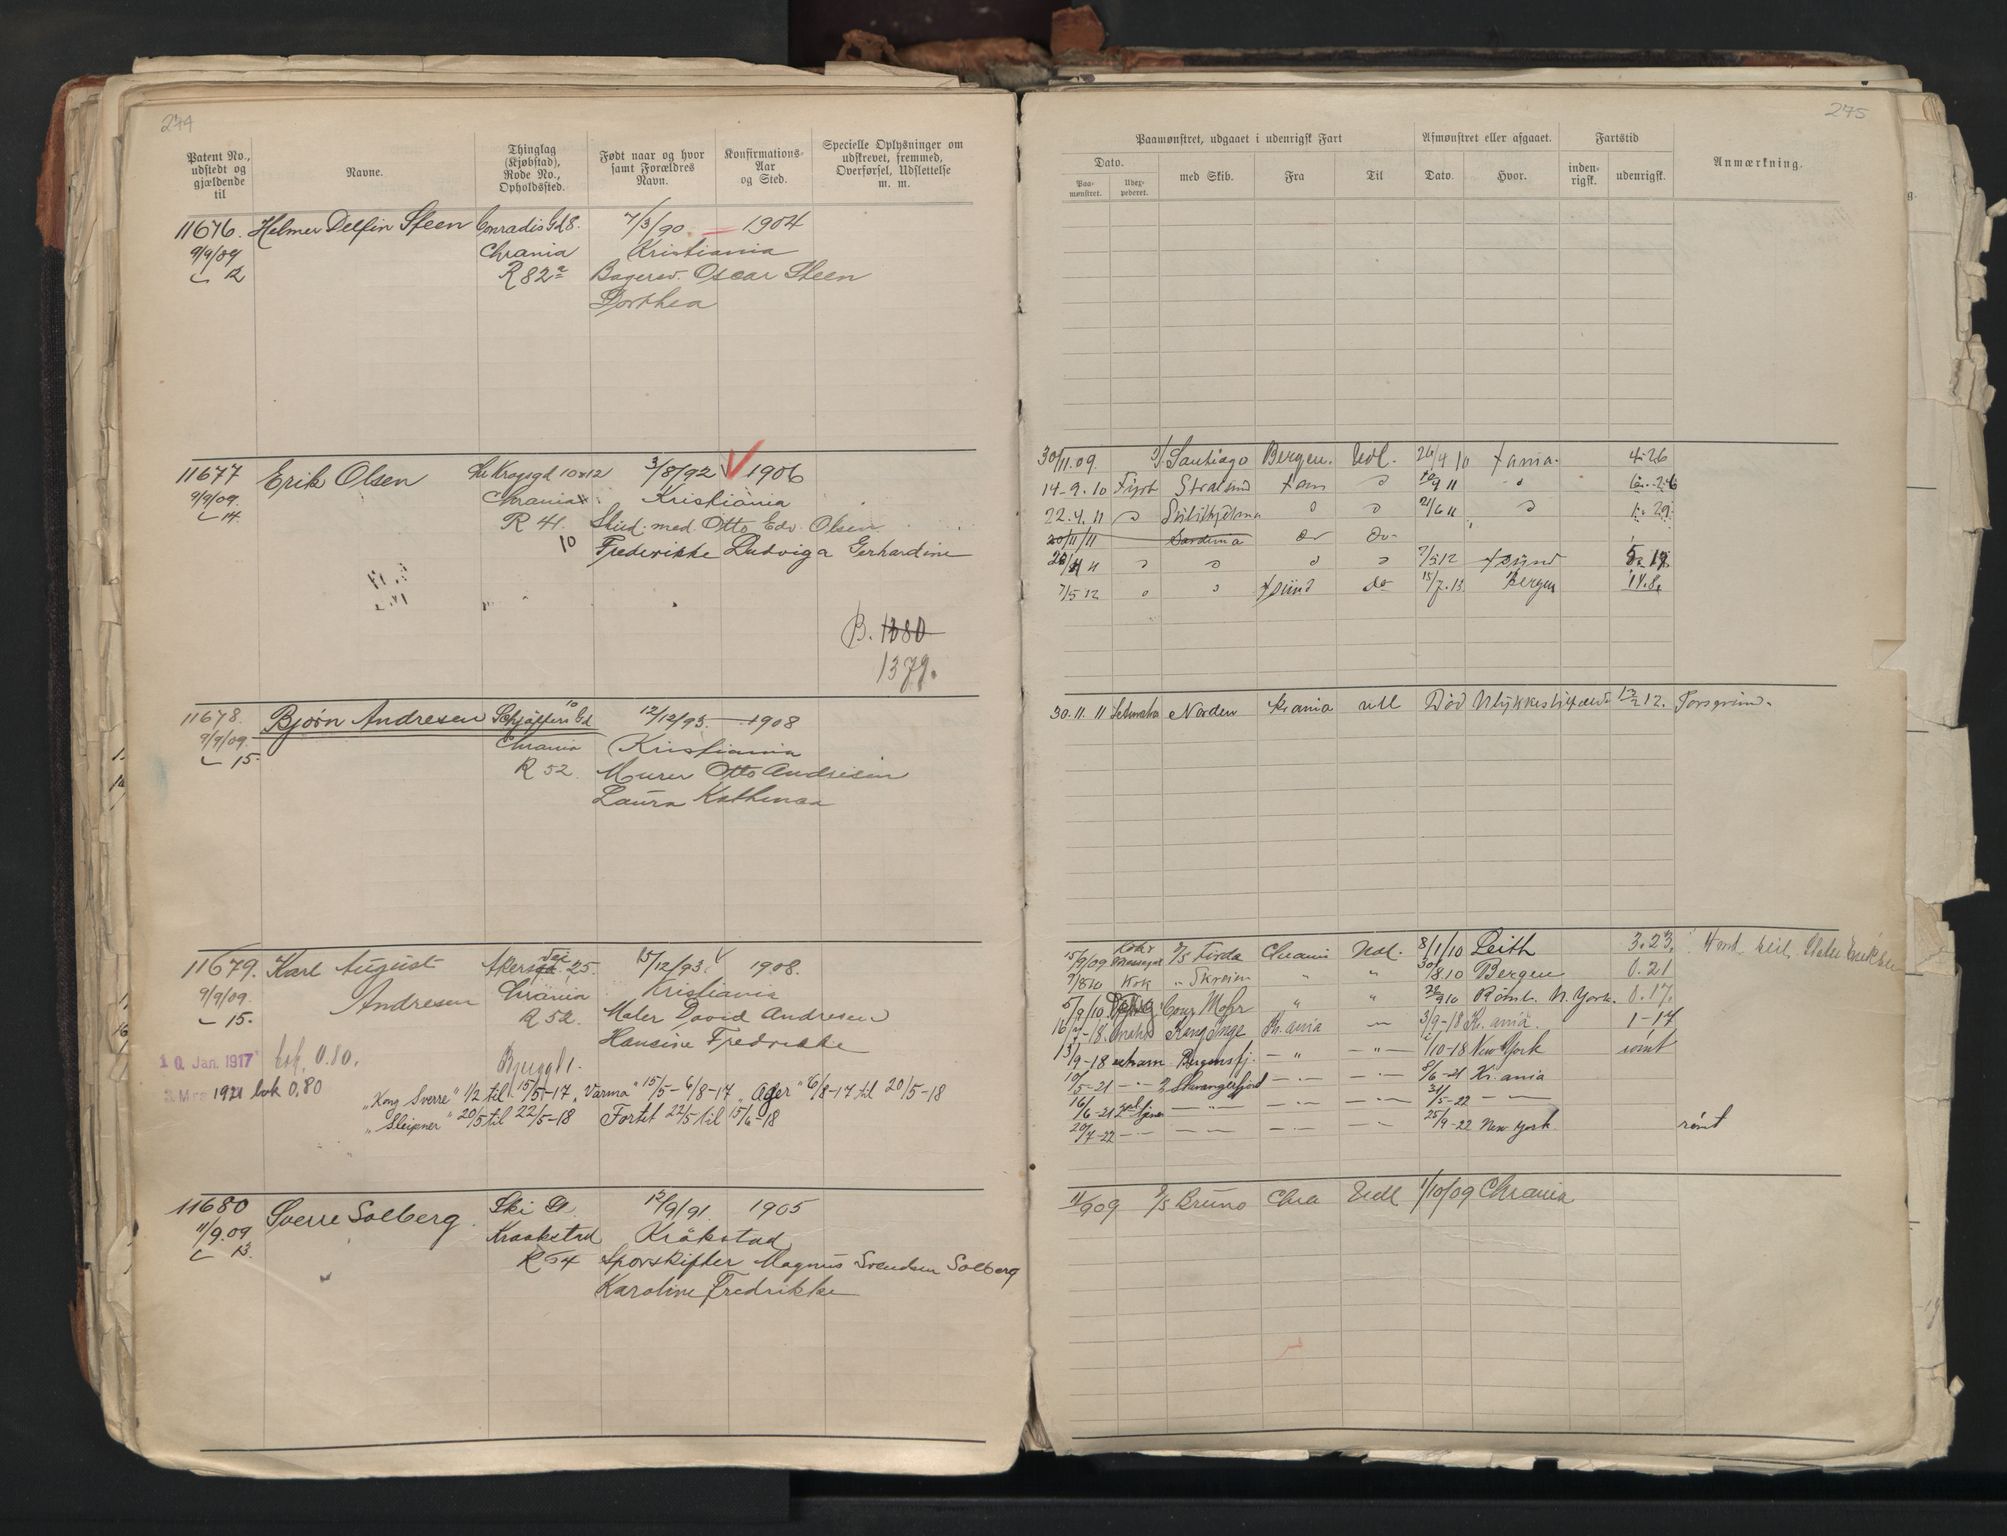 274
Patent No., udstedt og gjældende til
Navne.
Thinglag (Kjøbstad), Rode No., Opholdssted.
Født naar og hvor samt Forældres Navn.
Konfirmations- Aar og Sted.
Specielle Oplysninger om udskrevet, fremmed, Overførsel, Udslettelse m. m.
11676. Helmer Delfin Steen Conradis Gd 8. 7/3/90. — 1904
9/9/09 Chrania Kristiania
12 R 82a Bagersv. Oscar Steen
Dorthea
11677 Erik Olsen Chr Krogsgd 10 x 12 3/8/92 V 1906
9/9/09. Chrania Kristiania
14. R 41. Stud. med. Otto Edv. Olsen
10 Frederikke Ludviga Gerhardine
B. 1080
1379.
11678. Bjørn Andresen Schjøtters Gd 10 12/12/93. — 1908
9/9/09. Chrania Kristiania
15. R 52. Murer Otto Andresen
Laura Kathinca
11679. Karl August Akersvei 25. 15/12/93. 1908.
9/9/09. Andresen Chrania Kristiania
15. R 52. Maler David Andresen
Hansine Fredrikke
10 Jan. 1917 bok. 0.80.
3. Mrs 1921 bok 0,80
„Kong Sverre" 1/2 til 15/5-17, „Varma" 15/5 - 6/8-17 „Ager" 6/8-17 til 20/5-18
„Sleipner" 20/5 til 22/5-18 Fortet 22/5 til 15/6-18
11680 Sverre Solberg. Ski St. 12/9/91. 1905
11/9.09 Kraakstad Kråkstad
13. R 54 Sporskifter Magnus Svendsen Solberg
Karoline Fredrikke
275
Paamønstret, udgaaet i udenrigsk Fart
Afmønstret eller afgaaet.
Fartstid
Anmærkning.
Dato.
Paa- mønstret.
Udex- pederet.
med Skib.
Fra
Til
Dato.
Hvor.
inden- rigsk.
udenrigsk.
30/11.09. S/ Santiago Bergen. Udl. 26/9 10 Xania. 4.26
14-9.10 Fyrb Stralsund Xan " 9 11 " 6.26
22.4.11 " " " 21/6 11 " 1.29
20/11/11 Sardinia do do
" " " " 7/5 12 Xsund 5.12
7/5 12 " " Xsund do 15/7.13 Bergen 14.8.
30.11.11 Norden Kr.ania utl Død Ulykkestilfælde 12/2 12. Porsgrund.
15/9/09 S/S Firda Chrania Udl. 8/1/10 Leith 3.23.
7/8 10 Kok „ Skreien " " 30/8.10 Bergen 0.21
5/9/10 Conr Mohr " " 22/9 10 Rømt. N. York. 0.17.
16/7-18. Kong Inge Kr.ania — 3/9-18 Kr.ania. 1-17
13/9-18 Bergensfj. — " — " — /10-18 New York rømt
10/5-21 — " — Stavangerfjord — " — — " — 8/6-21 Kr.ania
16/6-21 — " — — " — — " — 31/5-22 — " —
20/7-22 — " — — " — — " — 25/9-22 New York. rømt
11/9 09 S/S Bruno Chra Udl 1/10/09 Chrania